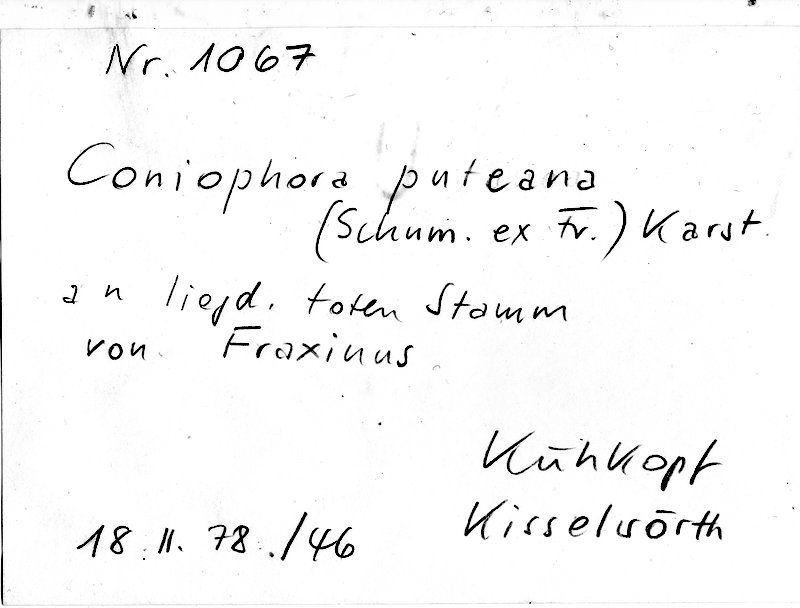 Nr. 1067
Coniophora puteana
(Schum. ex Fr.) Karst.
an liegd. toten Stamm
von Fraxinus
Kühkopf
Kisselwörth
18. II. 78./46